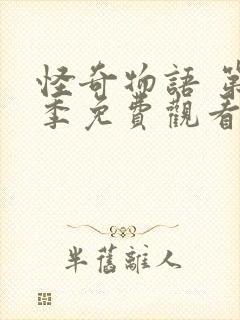 怪奇物語 第
季免費觀看
半舊離人